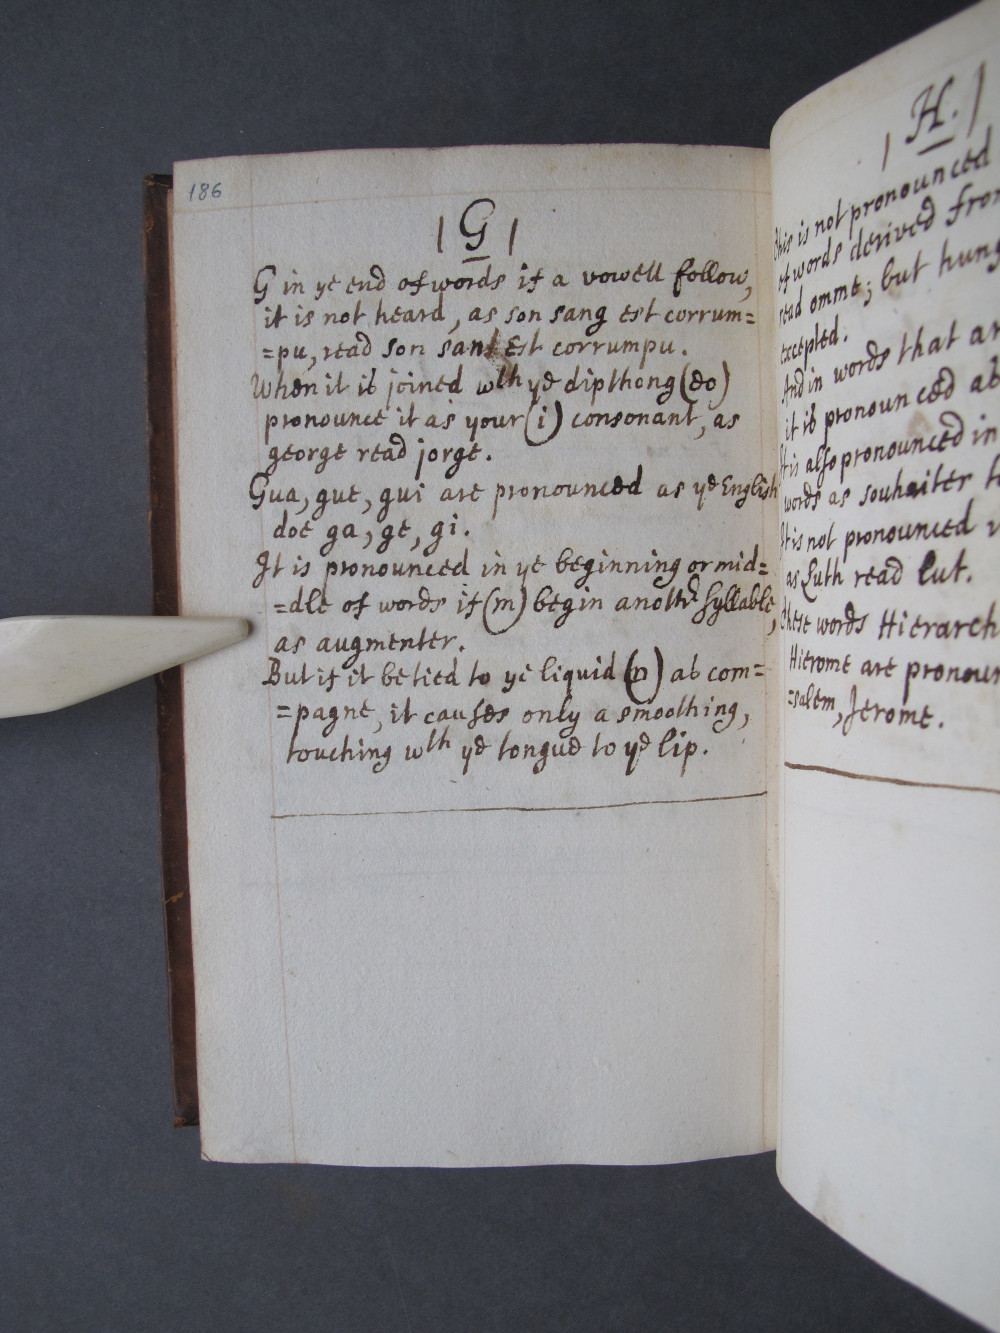 186
| G |
G in ye end of words if a vowell follow,
it is not heard, as son sang est corrum=
=pu, read son sant est corrumpu.
When it is joined wth ye dipthong (eo)
pronounce it as your (i) consonant, as
george read jorge.
Gua, gue, gui are pronounced as ye English
doe ga, ge, gi.
It is pronounced in ye beginning or mid=
=dle of words if (m) begin another syllable,
as augmenter.
But if it be tied to ye liquid (n) as com=
=pagne, it causes only a smoothing,
touching wth ye tongue to ye lip.
| H. |
this is not pronounced
of words derived from
read omme; but hung
excepted.
And in words that ar
it is pronounced as
It is also pronounced in
words as souhaiter
It is not pronounced
as Luth read Lut.
These words Hierarch
Hierome are pronoun
=salem, Jerome.